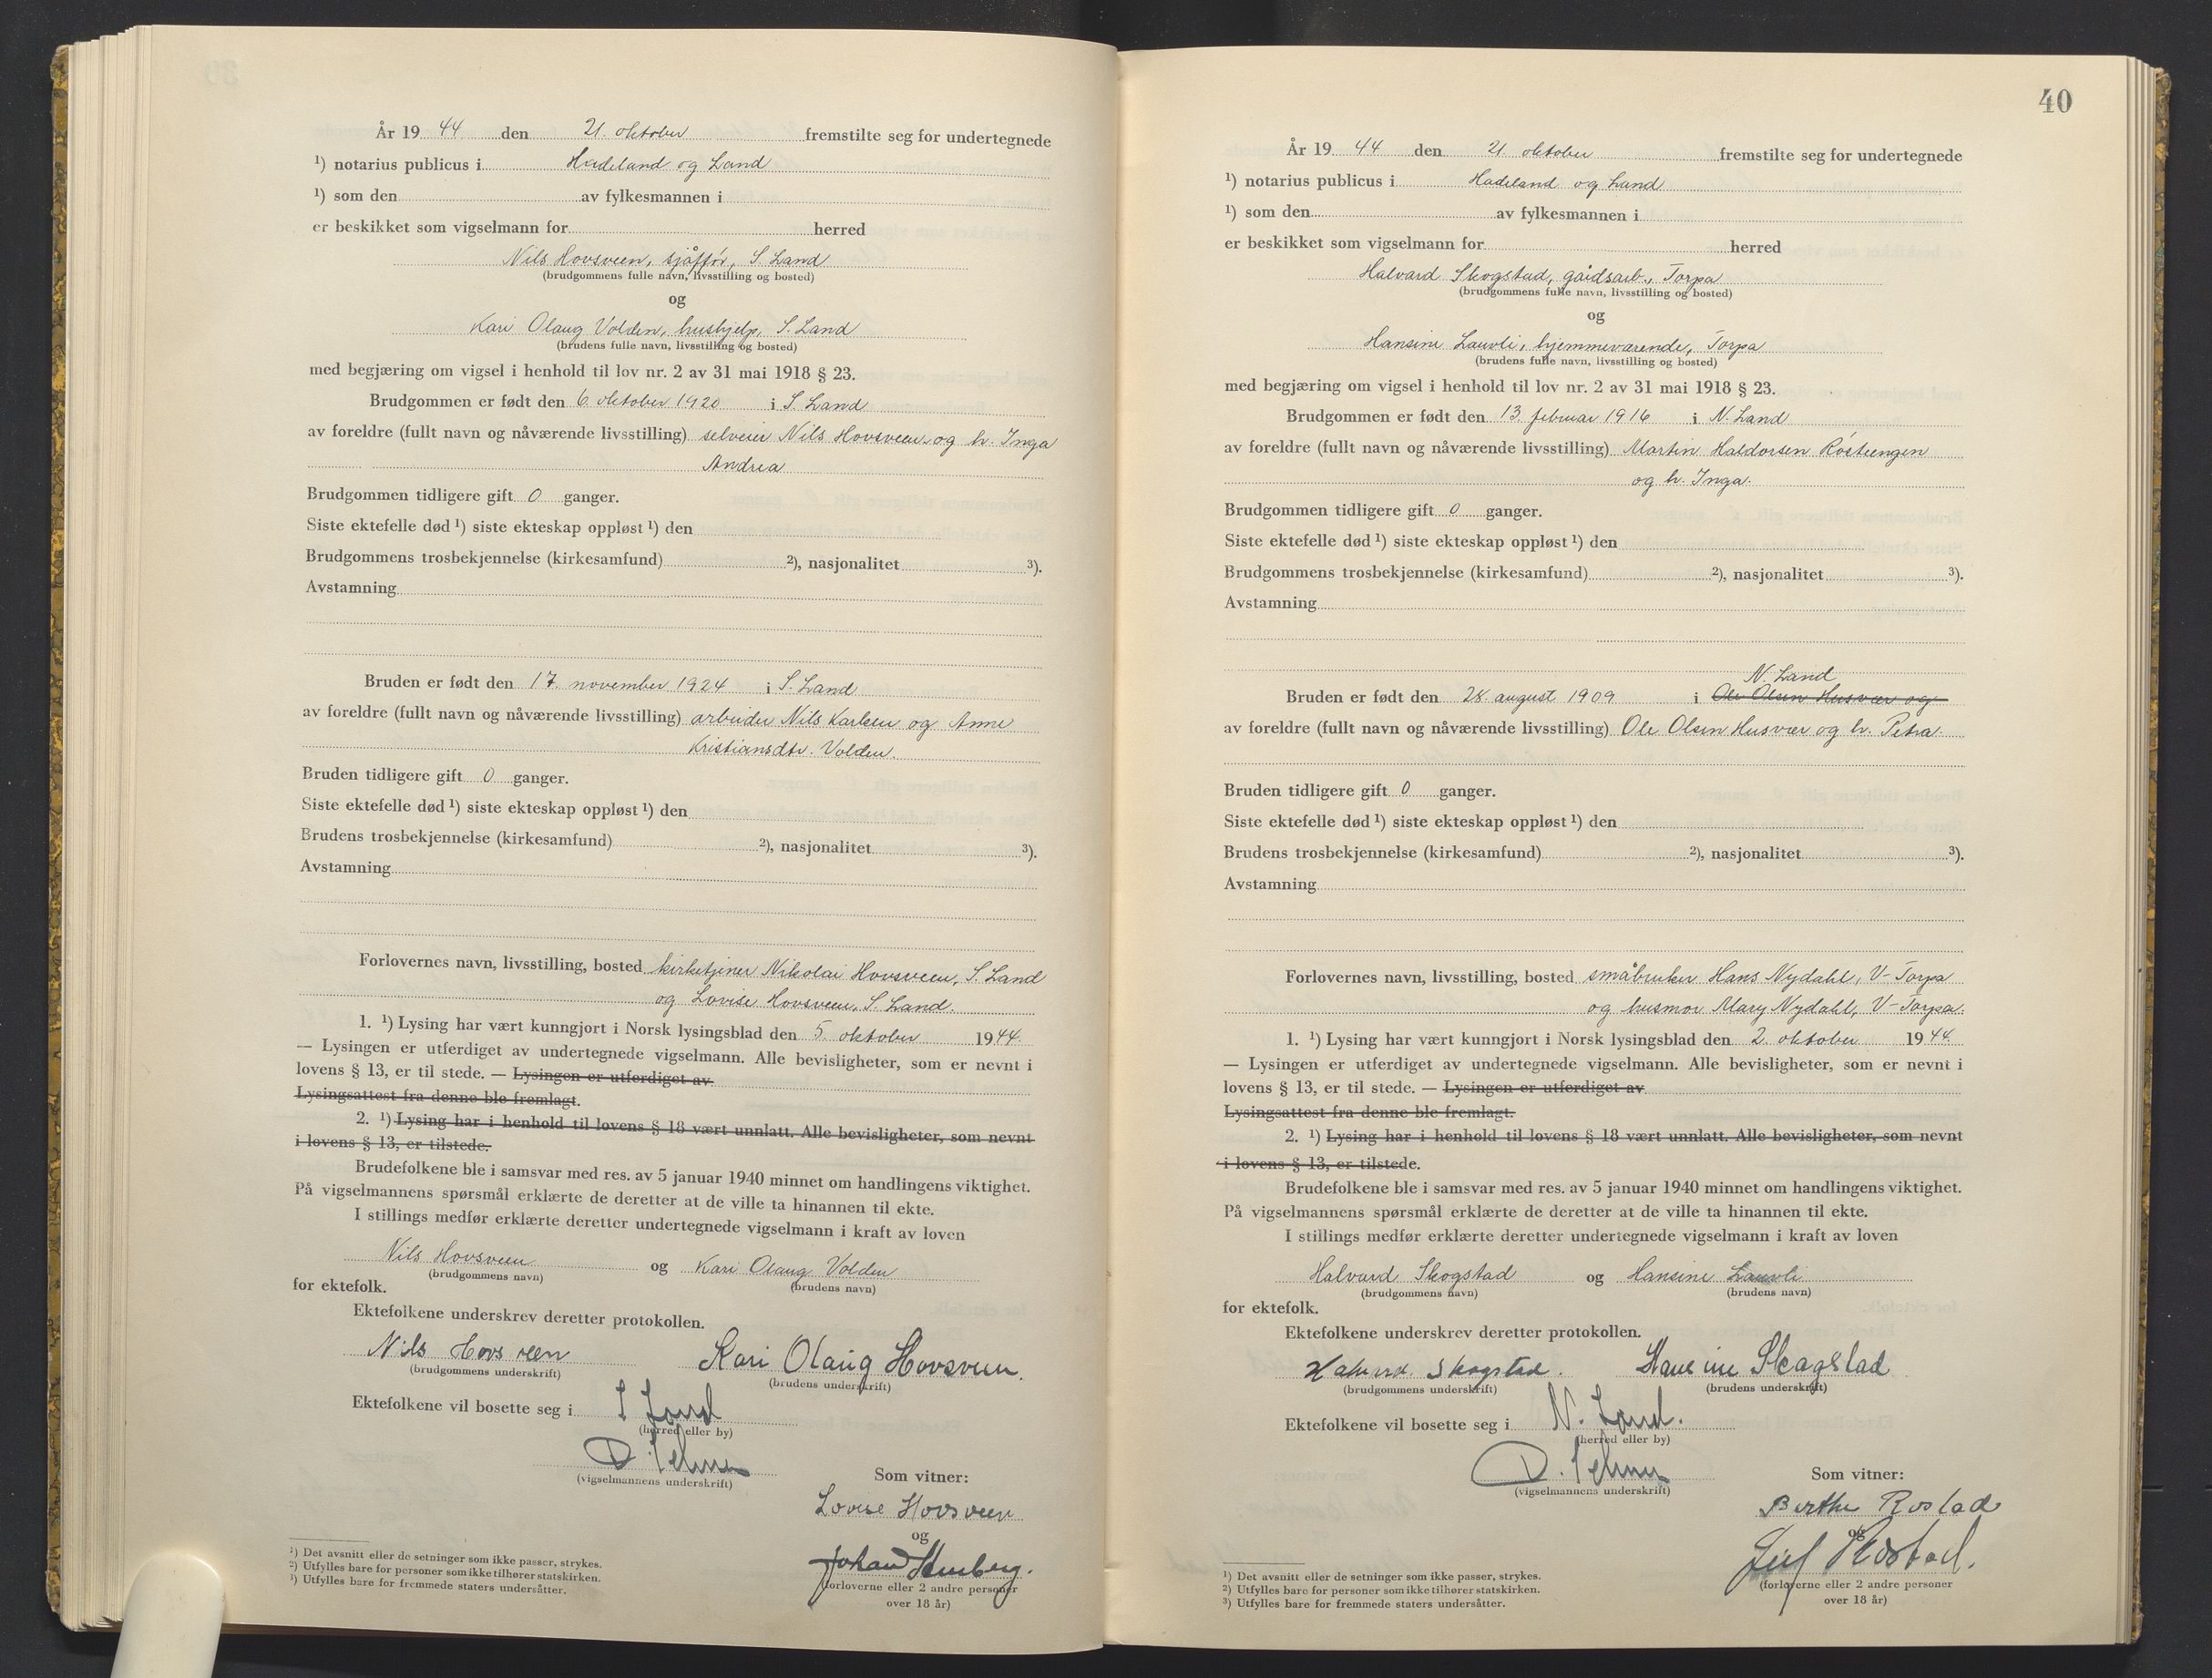 År 19 44 den 21. oktober fremstilte seg for undertegnede
¹) notarius publicus i Hadeland og Land
¹) som den av fylkesmannen i
er beskikket som vigselmann for herred
Nils Hovsveen, sjåffør, S. Land
(brudgommens fulle navn, livsstilling og bosted)
og
Kari Olaug Volden, hushjelp, S. Land
(brudens fulle navn, livsstilling og bosted)
med begjæring om vigsel i henhold til lov nr. 2 av 31 mai 1918 § 23.
Brudgommen er født den 6. oktober 1920 i S. Land
av foreldre (fullt navn og nåværende livsstilling) selveier Nils Hovsveen og h. Inga
Andrea
Brudgommen tidligere gift 0 ganger.
Siste ektefelle død ¹) siste ekteskap oppløst ¹) den
Brudgommens trosbekjennelse (kirkesamfund) ²), nasjonalitet ³).
Avstamning
Bruden er født den 17. november 1924 i S. Land
av foreldre (fullt navn og nåværende livsstilling) arbeider Nils Karlsen og Anne
Kristiansdtr. Volden.
Bruden tidligere gift 0 ganger.
Siste ektefelle død ¹) siste ekteskap oppløst ¹) den
Brudens trosbekjennelse (kirkesamfund) ²), nasjonalitet ³).
Avstamning
Forlovernes navn, livsstilling, bosted kirketjener Nikolai Hovsveen, S. Land
og Lovise Hovsveen, S. Land.
1. ¹) Lysing har vært kunngjort i Norsk lysingsblad den 5. oktober 1944
— Lysingen er utferdiget av undertegnede vigselmann. Alle bevisligheter, som er nevnt i
lovens § 13, er til stede. — Lysingen er utferdiget av
Lysingsattest fra denne ble fremlagt.
2. ¹) Lysing har i henhold til lovens § 18 vært unnlatt. Alle bevisligheter, som nevnt
i lovens § 13, er tilstede.
Brudefolkene ble i samsvar med res. av 5 januar 1940 minnet om handlingens viktighet.
På vigselmannens spørsmål erklærte de deretter at de ville ta hinannen til ekte.
I stillings medfør erklærte deretter undertegnede vigselmann i kraft av loven
Nils Hovsveen og Kari Olaug Volden
(brudgommens navn) (brudens navn)
for ektefolk.
Ektefolkene underskrev deretter protokollen.
Nils Hovsveen Kari Olaug Hovsveen.
(brudgommens underskrift) (brudens underskrift)
Ektefolkene vil bosette seg i S Land
(herred eller by)
(vigselmannens underskrift)
Som vitner:
Lovise Hovsveen
og
Johan
(forloverne eller 2 andre personer
over 18 år)
¹) Det avsnitt eller de setninger som ikke passer, strykes.
²) Utfylles bare for personer som ikke tilhører statskirken.
³) Utfylles bare for fremmede staters undersåtter.
40
År 19 44 den 21. oktober fremstilte seg for undertegnede
¹) notarius publicus i Hadeland og Land
¹) som den av fylkesmannen i
er beskikket som vigselmann for herred
Halvard Skogstad, gårdsarb., Torpa
(brudgommens fulle navn, livsstilling og bosted)
og
Hansine Lauvli, hjemmeværende, Torpa
(brudens fulle navn, livsstilling og bosted)
med begjæring om vigsel i henhold til lov nr. 2 av 31 mai 1918 § 23.
Brudgommen er født den 13. februar 1916 i N. Land
av foreldre (fullt navn og nåværende livsstilling) Martin Haldorsen Røstengen
og h. Inga.
Brudgommen tidligere gift 0 ganger.
Siste ektefelle død ¹) siste ekteskap oppløst ¹) den
Brudgommens trosbekjennelse (kirkesamfund) ²), nasjonalitet ³).
Avstamning
N. Land
Bruden er født den 28. august 1909 i Ole Olsen Husvær og
av foreldre (fullt navn og nåværende livsstilling) Ole Olsen Husvær og h. Petra.
Bruden tidligere gift 0 ganger.
Siste ektefelle død ¹) siste ekteskap oppløst ¹) den
Brudens trosbekjennelse (kirkesamfund) ²), nasjonalitet ³).
Avstamning
Forlovernes navn, livsstilling, bosted småbruker Hans Nydahl, V-Torpa
og husmor Mary Nydahl, V-Torpa.
1. ¹) Lysing har vært kunngjort i Norsk lysingsblad den 2. oktober 1944.
— Lysingen er utferdiget av undertegnede vigselmann. Alle bevisligheter, som er nevnt i
lovens § 13, er til stede. — Lysingen er utferdiget av
Lysingsattest fra denne ble fremlagt.
2. ¹) Lysing har i henhold til lovens § 18 vært unnlatt. Alle bevisligheter, som nevnt
i lovens § 13, er tilstede.
Brudefolkene ble i samsvar med res. av 5 januar 1940 minnet om handlingens viktighet.
På vigselmannens spørsmål erklærte de deretter at de ville ta hinannen til ekte.
I stillings medfør erklærte deretter undertegnede vigselmann i kraft av loven
Halvard Skogstad og Hansine Lauvli
(brudgommens navn) (brudens navn)
for ektefolk.
Ektefolkene underskrev deretter protokollen.
Halvard Skogstad. Hansine Skogstad
(brudgommens underskrift) (brudens underskrift)
Ektefolkene vil bosette seg i N. Land.
(herred eller by)
(vigselmannens underskrift)
Som vitner:
Birthe Rostad
og
Rostad.
(forloverne eller 2 andre personer
over 18 år)
¹) Det avsnitt eller de setninger som ikke passer, strykes.
²) Utfylles bare for personer som ikke tilhører statskirken.
³) Utfylles bare for fremmede staters undersåtter.